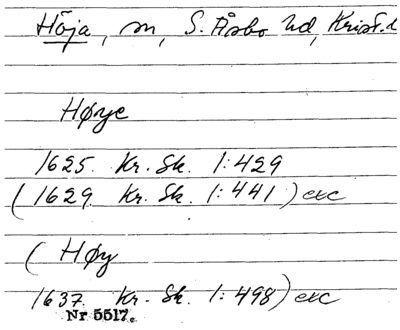 Höja, m, S. Åsbo hd, Krist.l
Hørye
1625. Kr. Sk. 1:429
(1629 Kr. Sk. 1:441) exc
(Høy
1637 Kr. Sk. 1:498) exc
Nr 5517.